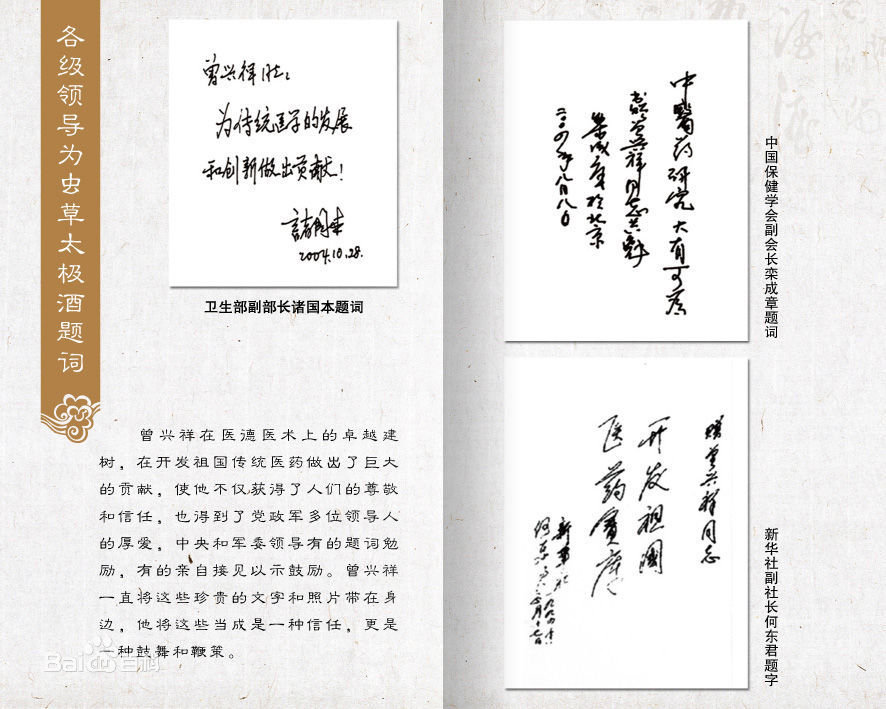 各级领导为虫草太极酒题词
曾兴祥
为传统医学的发展
和创新做出贡献!
2004.10.28.
卫生部副部长诸国本题词
曾兴祥在医德医术上的卓越建
树，在开发祖国传统医药做出了巨大
的贡献，使他不仅获得了人们的尊敬
和信任，也得到了党政军多位领导人
的厚爱，中央和军委领导有的题词勉
励，有的亲自接见以示鼓励。曾兴祥
一直将这些珍贵的文字和照片带在身
边，他将这些当成是一种信任，更是
一种鼓舞和鞭策。
Baidu百科
中醫药研究大有可为
曾兴祥同志共勉
栾成章於北京
二〇〇四年八月八日
中国保健学会副会长栾成章题词
赠曾兴祥同志
开发祖国
医药宝库
新华社
何东君
新华社副社长何东君题字